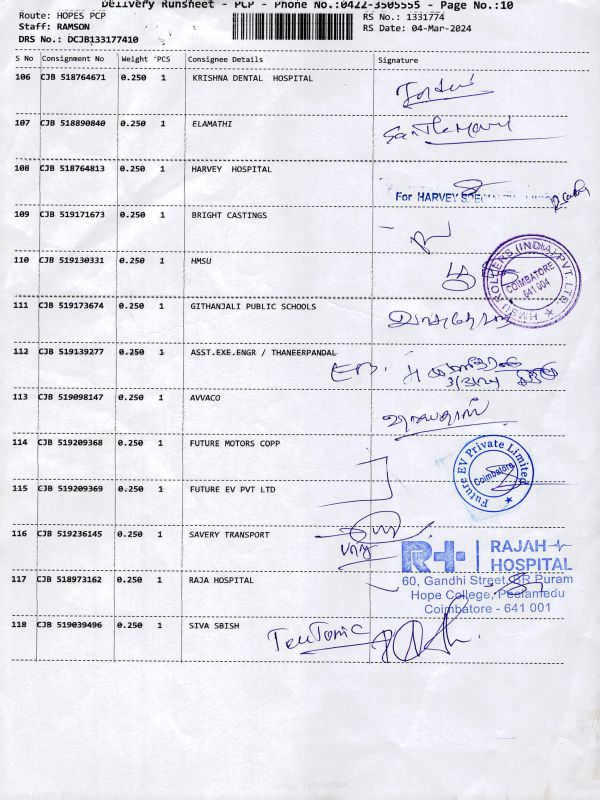 Delivery Runsheet - PCP - Phone No.:0422-3505555 - Page No.:10
Route: HOPES PCP
Staff: RAMSON
DRS No.: DCJB133177410
RS No.: 1331774
RS Date: 04-Mar-2024
S No Consignment No Weight PCS Consignee Details Signature
106 CJB 518764671 0.250 1 KRISHNA DENTAL HOSPITAL
107 CJB 518890840 0.250 1 ELAMATHI
108 CJB 518764813 0.250 1 HARVEY HOSPITAL
For HARVEY
109 CJB 519171673 0.250 1 BRIGHT CASTINGS
110 CJB 519130331 0.250 1 HMSU
HMSU ROLLERS (INDIA) PVT. LTD.
COIMBATORE
641 004
111 CJB 519173674 0.250 1 GITHANJALI PUBLIC SCHOOLS
112 CJB 519139277 0.250 1 ASST.EXE.ENGR / THANEERPANDAL
113 CJB 519098147 0.250 1 AVVACO
114 CJB 519209368 0.250 1 FUTURE MOTORS COPP
Future EV Private Limited
Coimbatore
115 CJB 519209369 0.250 1 FUTURE EV PVT LTD
116 CJB 519236145 0.250 1 SAVERY TRANSPORT
R+ RAJAH
HOSPITAL
117 CJB 518973162 0.250 1 RAJA HOSPITAL
60, Gandhi Street, BR Puram
Hope College, Peelamedu
Coimbatore - 641 001
118 CJB 519039496 0.250 1 SIVA SBISH
TeuTonic